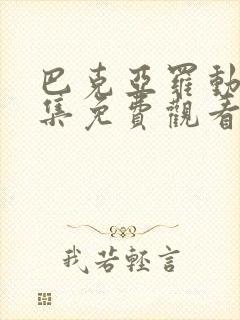 巴克亞羅動
集免費觀看
我若輕言